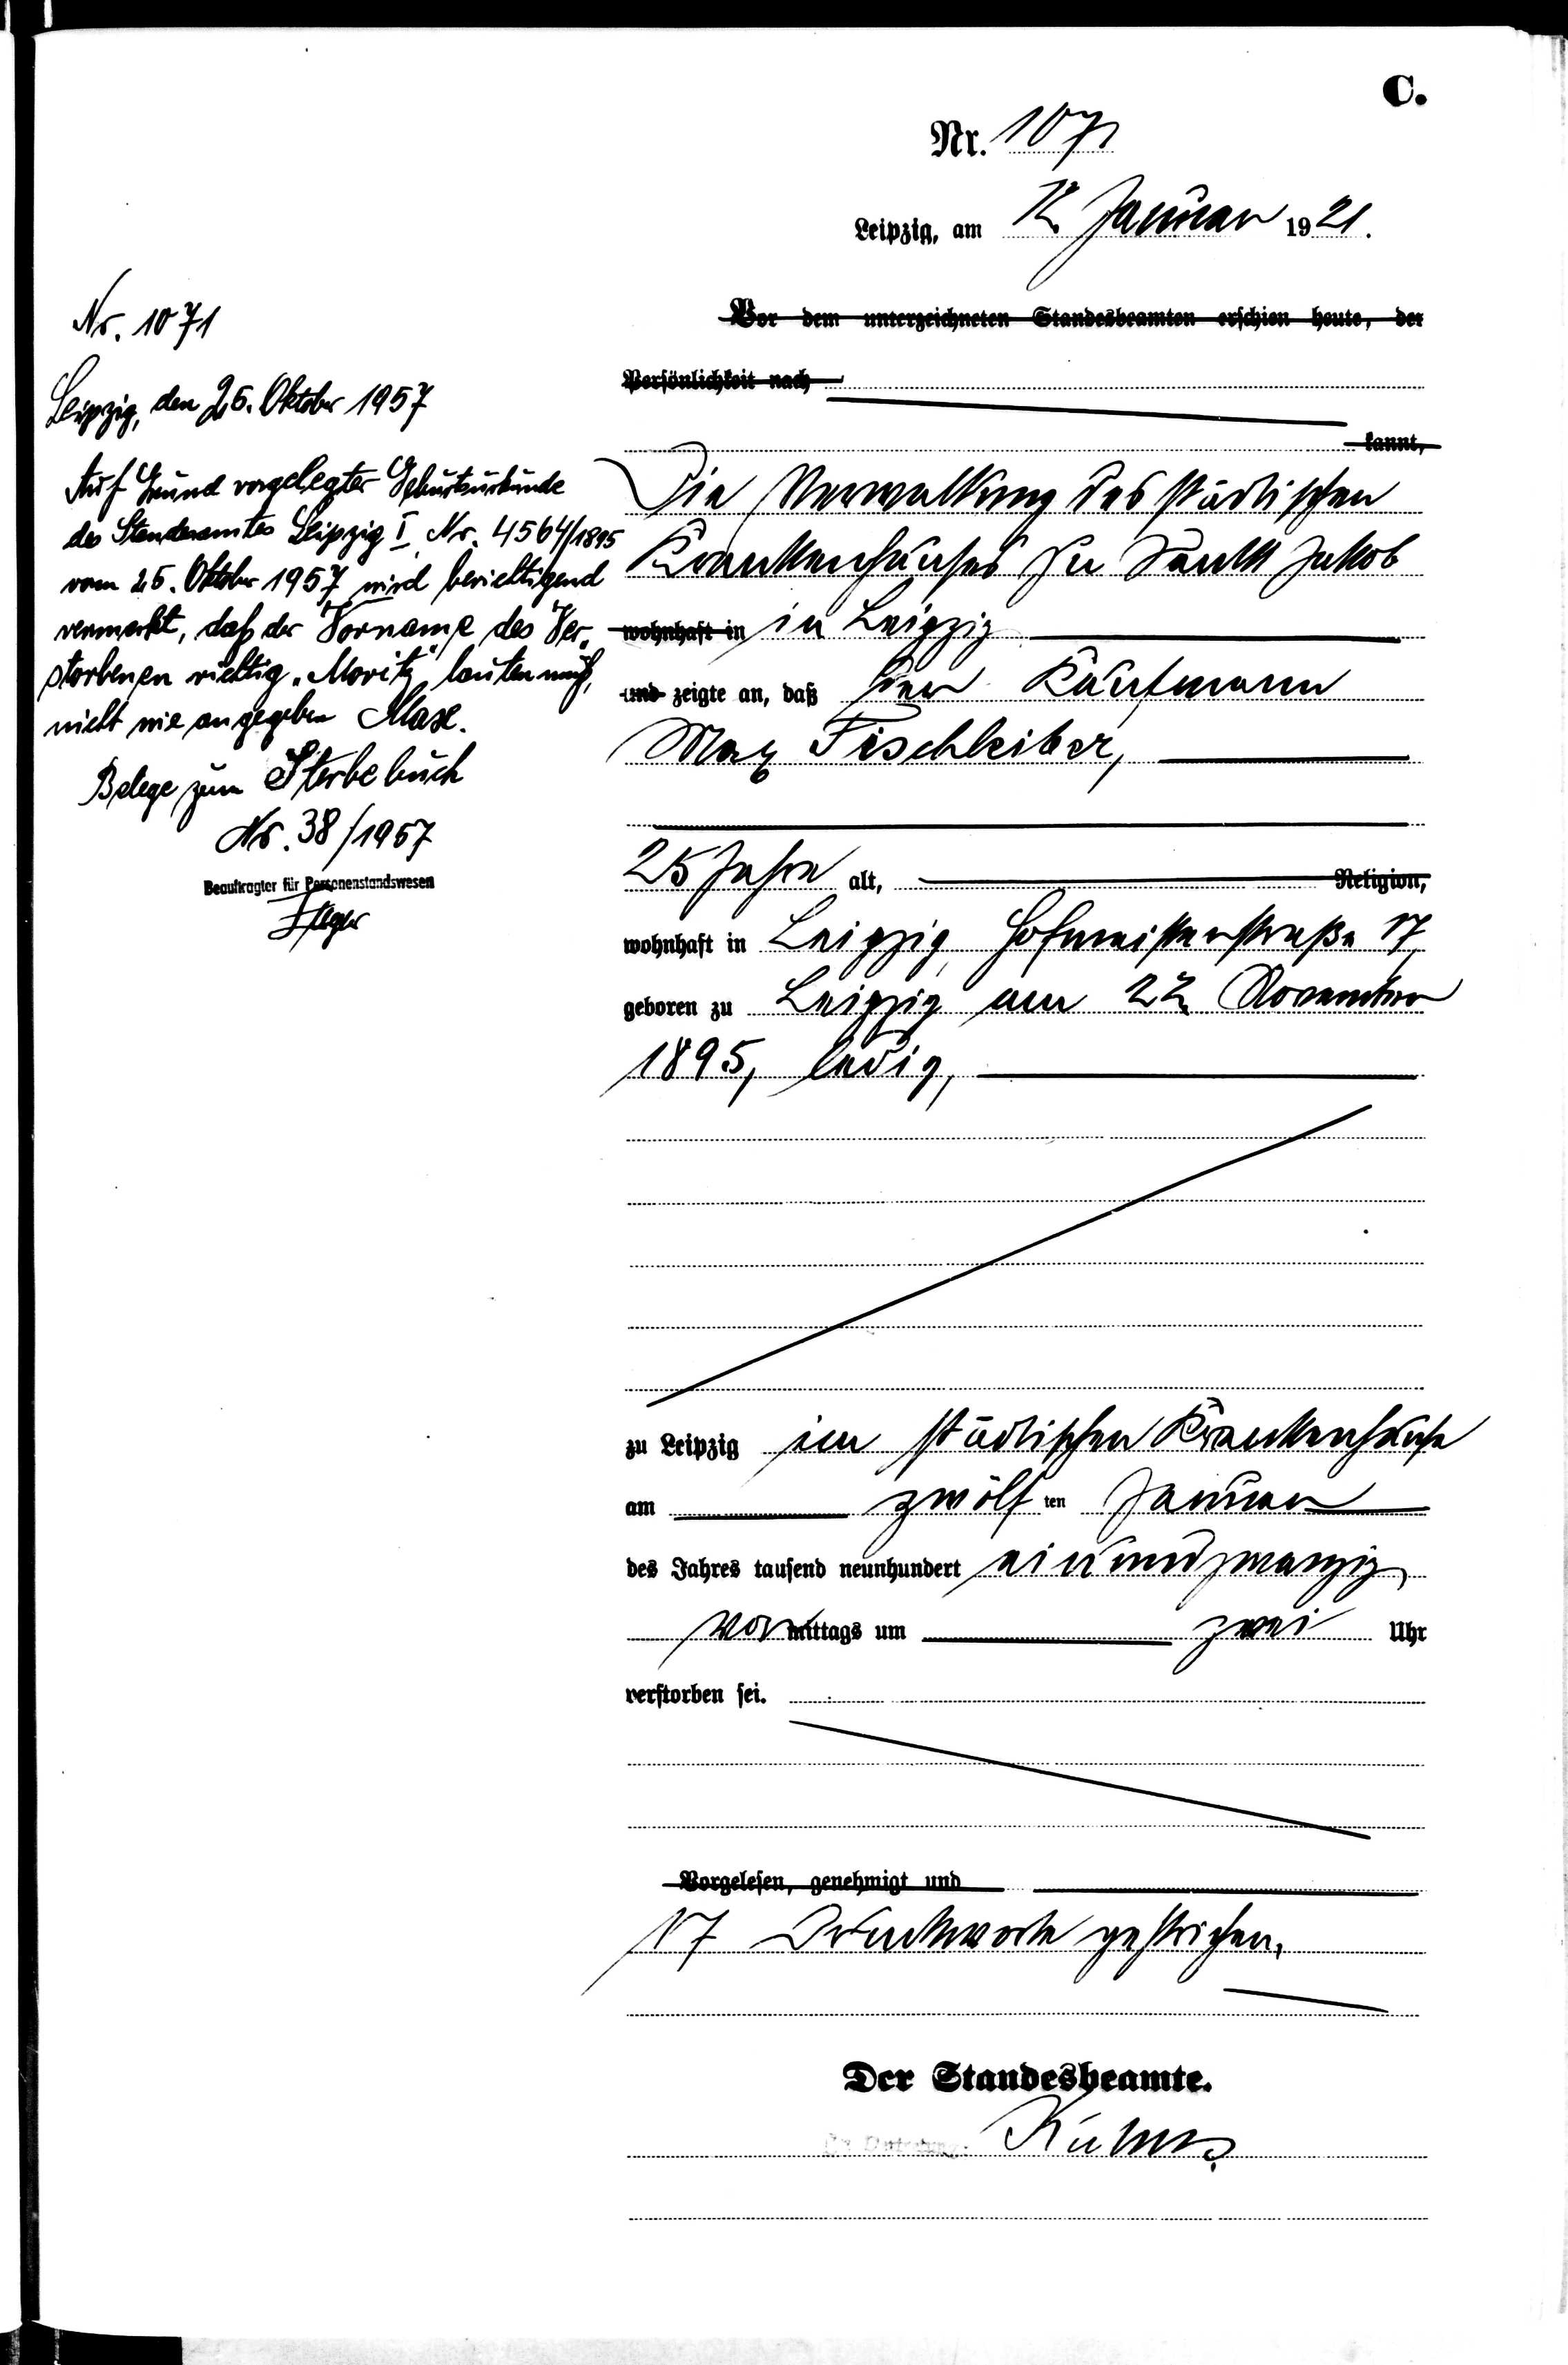 C.
Nr. 1071
Leipzig, am 12. Januar 1921.
Vor dem unterzeichneten Standesbeamten erschien heute, der
Persönlichkeit nach
kannt,
Die Verwaltung des städtischen
Krankenhauses zu Sankt Jakob
wohnhaft in in Leipzig
und zeigte an, daß der Kaufmann
Max Fischleiber,
25 Jahre alt, Religion,
wohnhaft in Leipzig, Hofmeisterstraße 17,
geboren zu Leipzig am 22. November
1895, ledig,
zu Leipzig im städtischen Krankenhause
am zwölf ten Januar
des Jahres tausend neunhundert einundzwanzig
vormittags um zwei Uhr
verstorben sei.
Vorgelesen, genehmigt und
17 Druckworte gestrichen.
Der Standesbeamte.
Nr. 1071
Leipzig, den 25. Oktober 1957
Auf Grund vorgelegter Geburtsurkunde
des Standesamtes Leipzig I Nr. 4564/1895
vom 25. Oktober 1957 wird berichtigend
vermerkt, daß der Vorname des Ver-
storbenen richtig „Moritz" lauten muß,
nicht wie angegeben Max.
Belege zum Sterbebuch
Nr. 38/1957
Beauftragter für Personenstandswesen